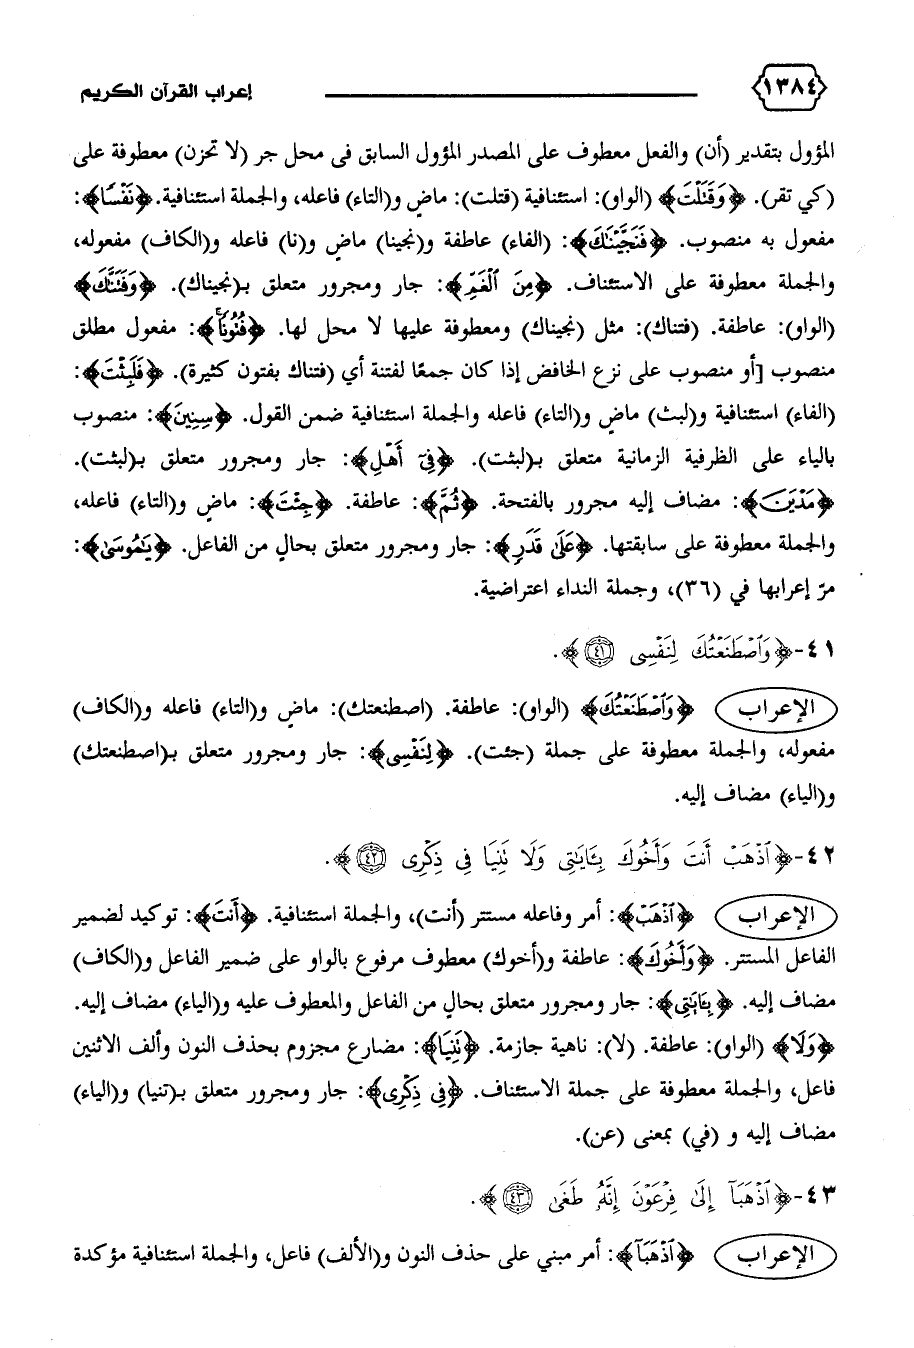 ١٣٨٤ إعراب القرآن الكريم
المؤول بتقدير (أن) والفعل معطوف على المصدر المؤول السابق في محل جر (لا تحزن) معطوفة على
(كي تقر). ﴿وَقَتَلْتَ﴾ (الواو): استئنافية (قتلت): ماضٍ و(التاء) فاعله، والجملة استئنافية. ﴿نَفْسًا﴾:
مفعول به منصوب. ﴿فَنَجَّيْنَٰكَ﴾: (الفاء) عاطفة و(نجينا) ماضٍ و(نا) فاعله و(الكاف) مفعوله،
والجملة معطوفة على الاستئناف. ﴿مِنَ ٱلْغَمِّ﴾: جار ومجرور متعلق بـ(نجيناك). ﴿وَفَتَنَّٰكَ﴾
(الواو): عاطفة. (فتناك): مثل (نجيناك) ومعطوفة عليها لا محل لها. ﴿فُتُونًا﴾: مفعول مطلق
منصوب [أو منصوب على نزع الخافض إذا كان جمعًا لفتنة أي (فتناك بفتون كثيرة). ﴿فَلَبِثْتَ﴾:
(الفاء) استئنافية و(لبث) ماضٍ و(التاء) فاعله والجملة استئنافية ضمن القول. ﴿سِنِينَ﴾: منصوب
بالياء على الظرفية الزمانية متعلق بـ(لبثت). ﴿فِىٓ أَهْلِ﴾: جار ومجرور متعلق بـ(لبثت).
﴿مَدْيَنَ﴾: مضاف إليه مجرور بالفتحة. ﴿ثُمَّ﴾: عاطفة. ﴿جِئْتَ﴾: ماضٍ و(التاء) فاعله،
والجملة معطوفة على سابقتها. ﴿عَلَىٰ قَدَرٍ﴾: جار ومجرور متعلق بحالٍ من الفاعل. ﴿يَٰمُوسَىٰ﴾:
مرّ إعرابها في (٣٦)، وجملة النداء اعتراضية.
٤١-﴿وَٱصْطَنَعْتُكَ لِنَفْسِى ٤١﴾.
الإعراب ﴿وَٱصْطَنَعْتُكَ﴾ (الواو): عاطفة. (اصطنعتك): ماضٍ و(التاء) فاعله و(الكاف)
مفعوله، والجملة معطوفة على جملة (جئت). ﴿لِنَفْسِى﴾: جار ومجرور متعلق بـ(اصطنعتك)
و(الياء) مضاف إليه.
٤٢-﴿ٱذْهَبْ أَنتَ وَأَخُوكَ بِـَٔايَٰتِى وَلَا تَنِيَا فِى ذِكْرِى ٤٢﴾.
الإعراب ﴿ٱذْهَبْ﴾: أمر وفاعله مستتر (أنت)، والجملة استئنافية. ﴿أَنتَ﴾: توكيد لضمير
الفاعل المستتر. ﴿وَأَخُوكَ﴾: عاطفة و(أخوك) معطوف مرفوع بالواو على ضمير الفاعل و(الكاف)
مضاف إليه. ﴿بِـَٔايَٰتِى﴾: جار ومجرور متعلق بحالٍ من الفاعل والمعطوف عليه و(الياء) مضاف إليه.
﴿وَلَا﴾ (الواو): عاطفة. (لا): ناهية جازمة. ﴿تَنِيَا﴾: مضارع مجزوم بحذف النون وألف الاثنين
فاعل، والجملة معطوفة على جملة الاستئناف. ﴿فِى ذِكْرِى﴾: جار ومجرور متعلق بـ(تنيا) و(الياء)
مضاف إليه و (في) بمعنى (عن).
٤٣-﴿ٱذْهَبَآ إِلَىٰ فِرْعَوْنَ إِنَّهُۥ طَغَىٰ ٤٣﴾.
الإعراب ﴿ٱذْهَبَآ﴾: أمر مبني على حذف النون و(الألف) فاعل، والجملة استئنافية مؤكدة